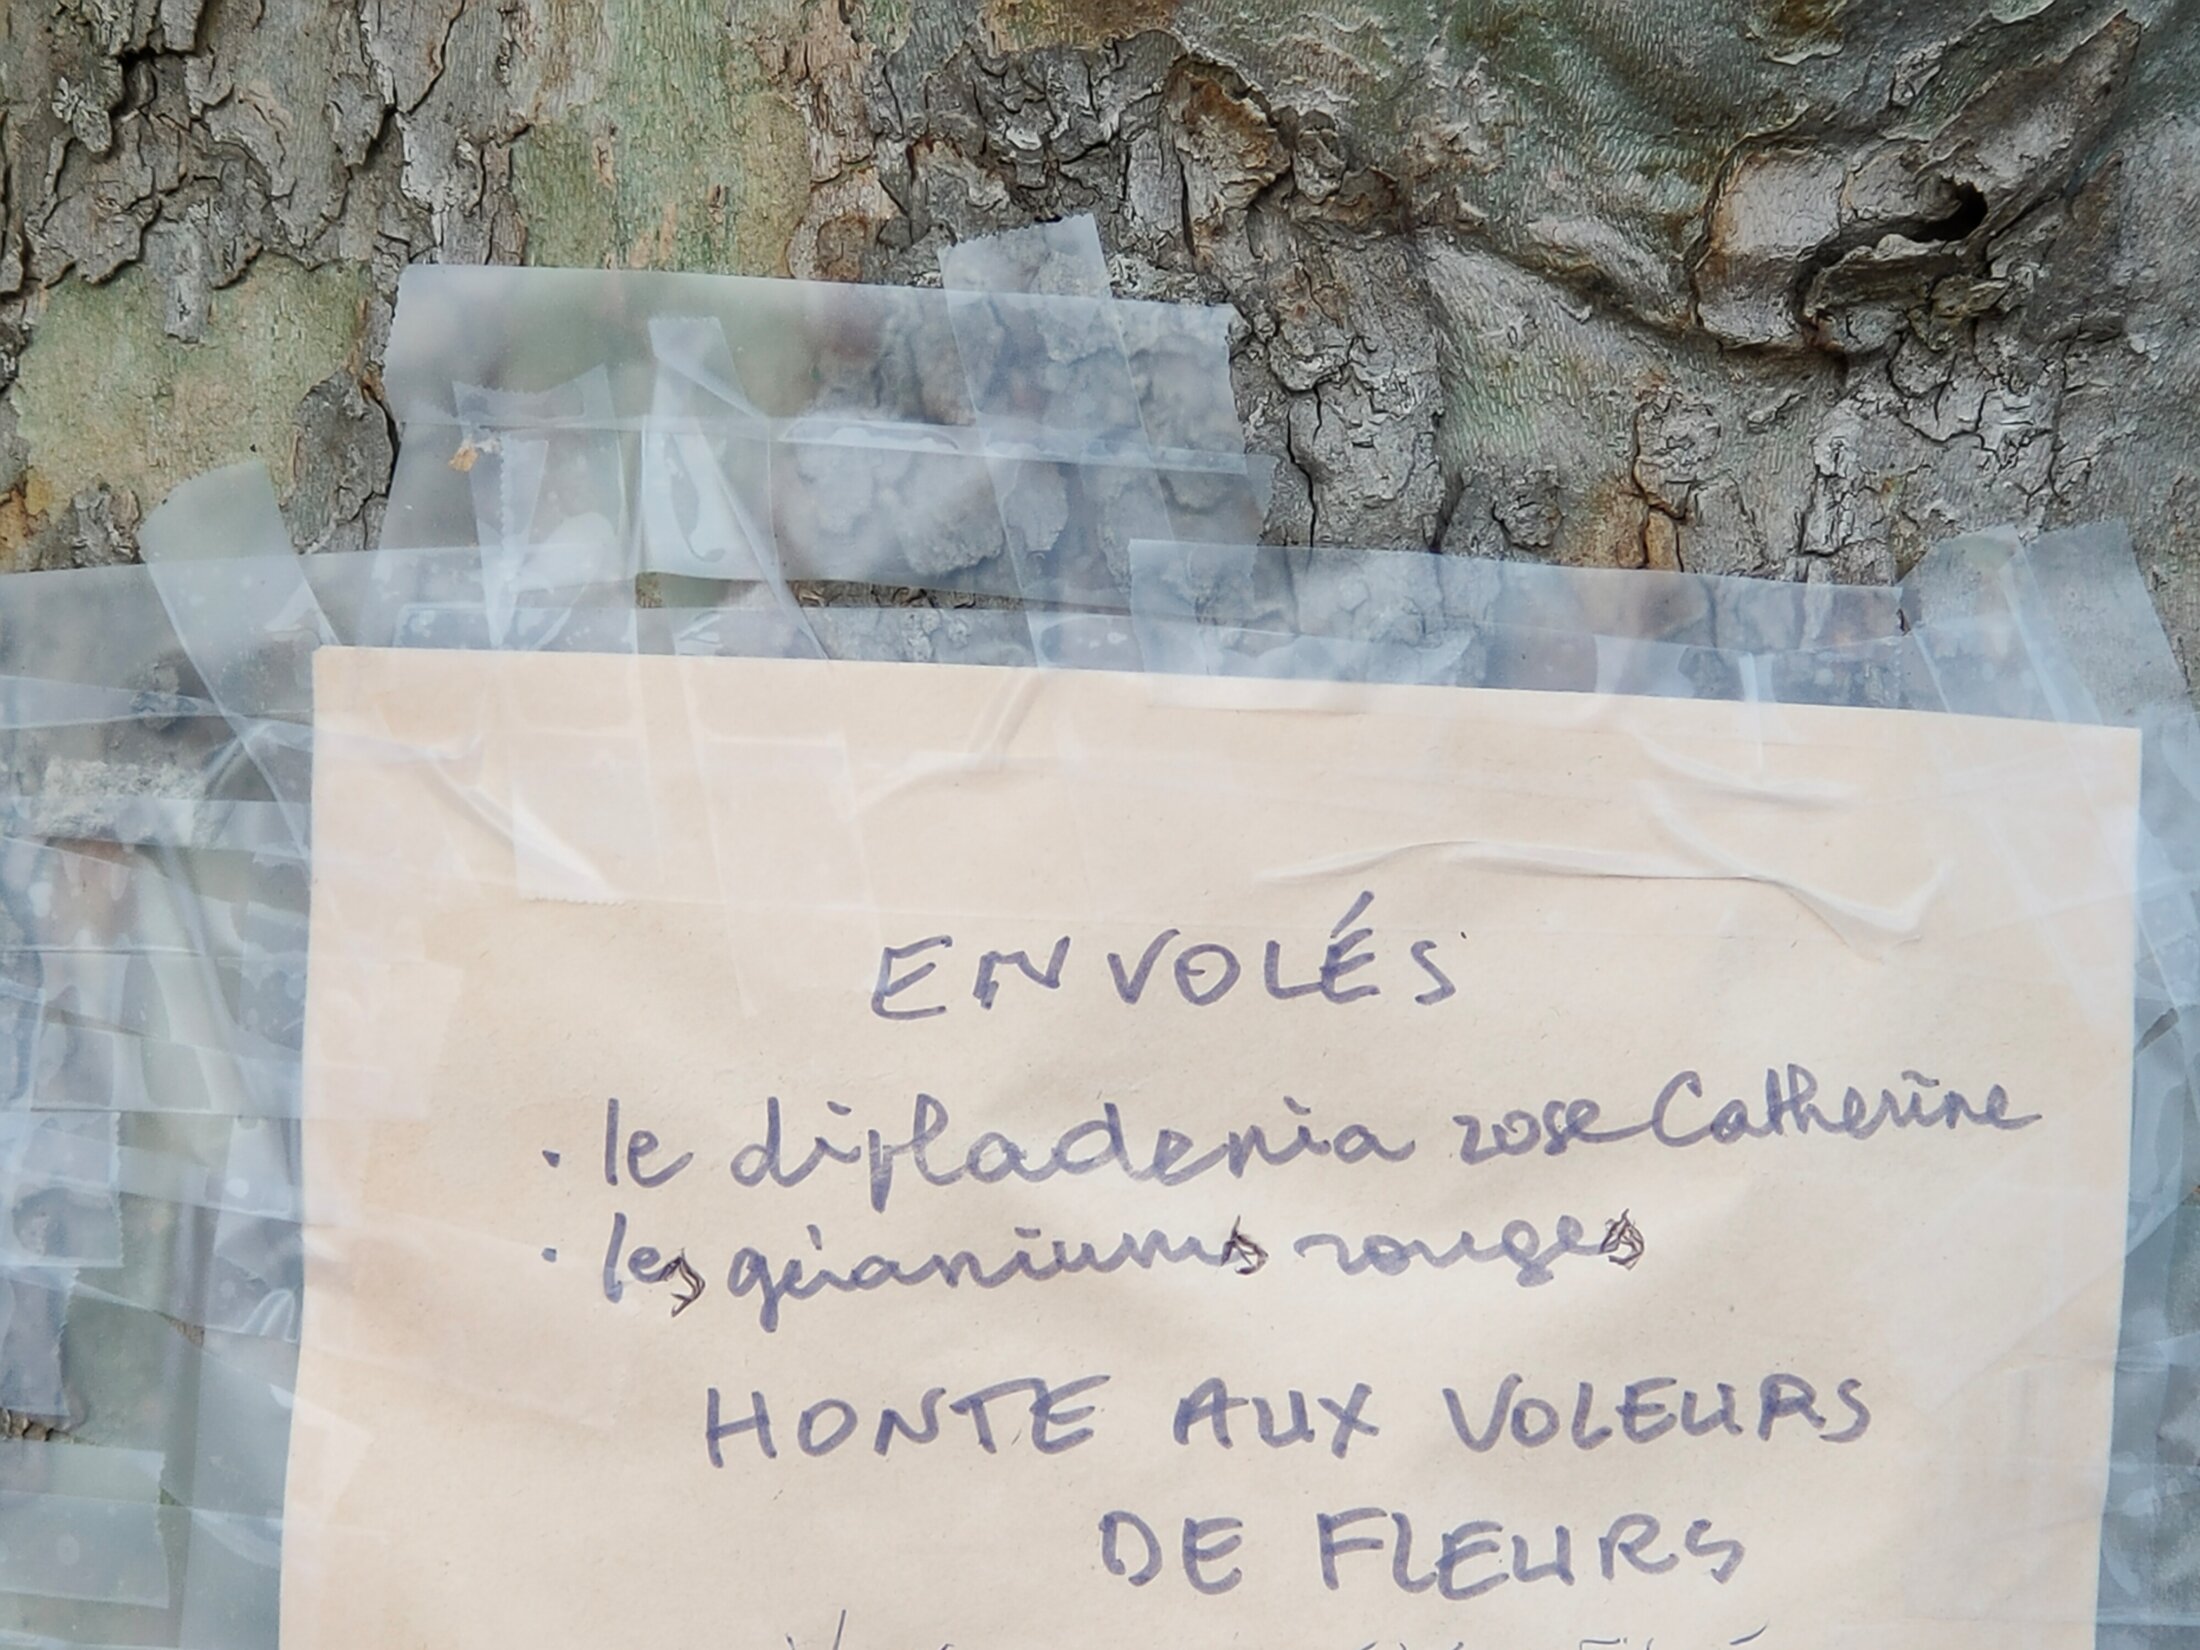 ENVOLÉS
· le dipladenia rose Catherine
· les géraniums rouges
HONTE AUX VOLEURS
DE FLEURS